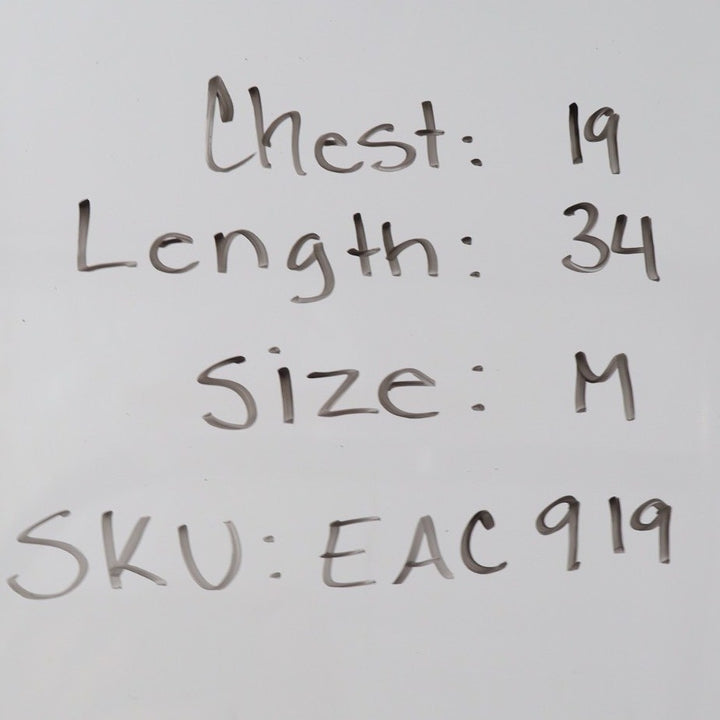 Chest: 19
Length: 34
Size: M
SKU: EAC919